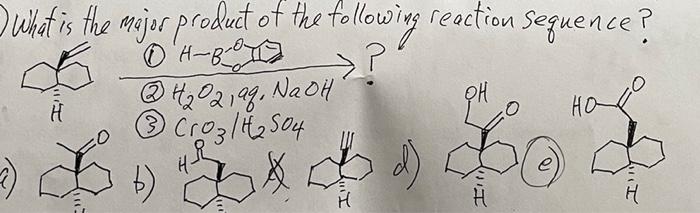 ) What is the major product of the following reaction sequence?
① H-B O O
② H2O2, aq. NaOH
③ CrO3/H2SO4
?
H
a) O H
b) H O H
H
d) OH O H
e) HO O H